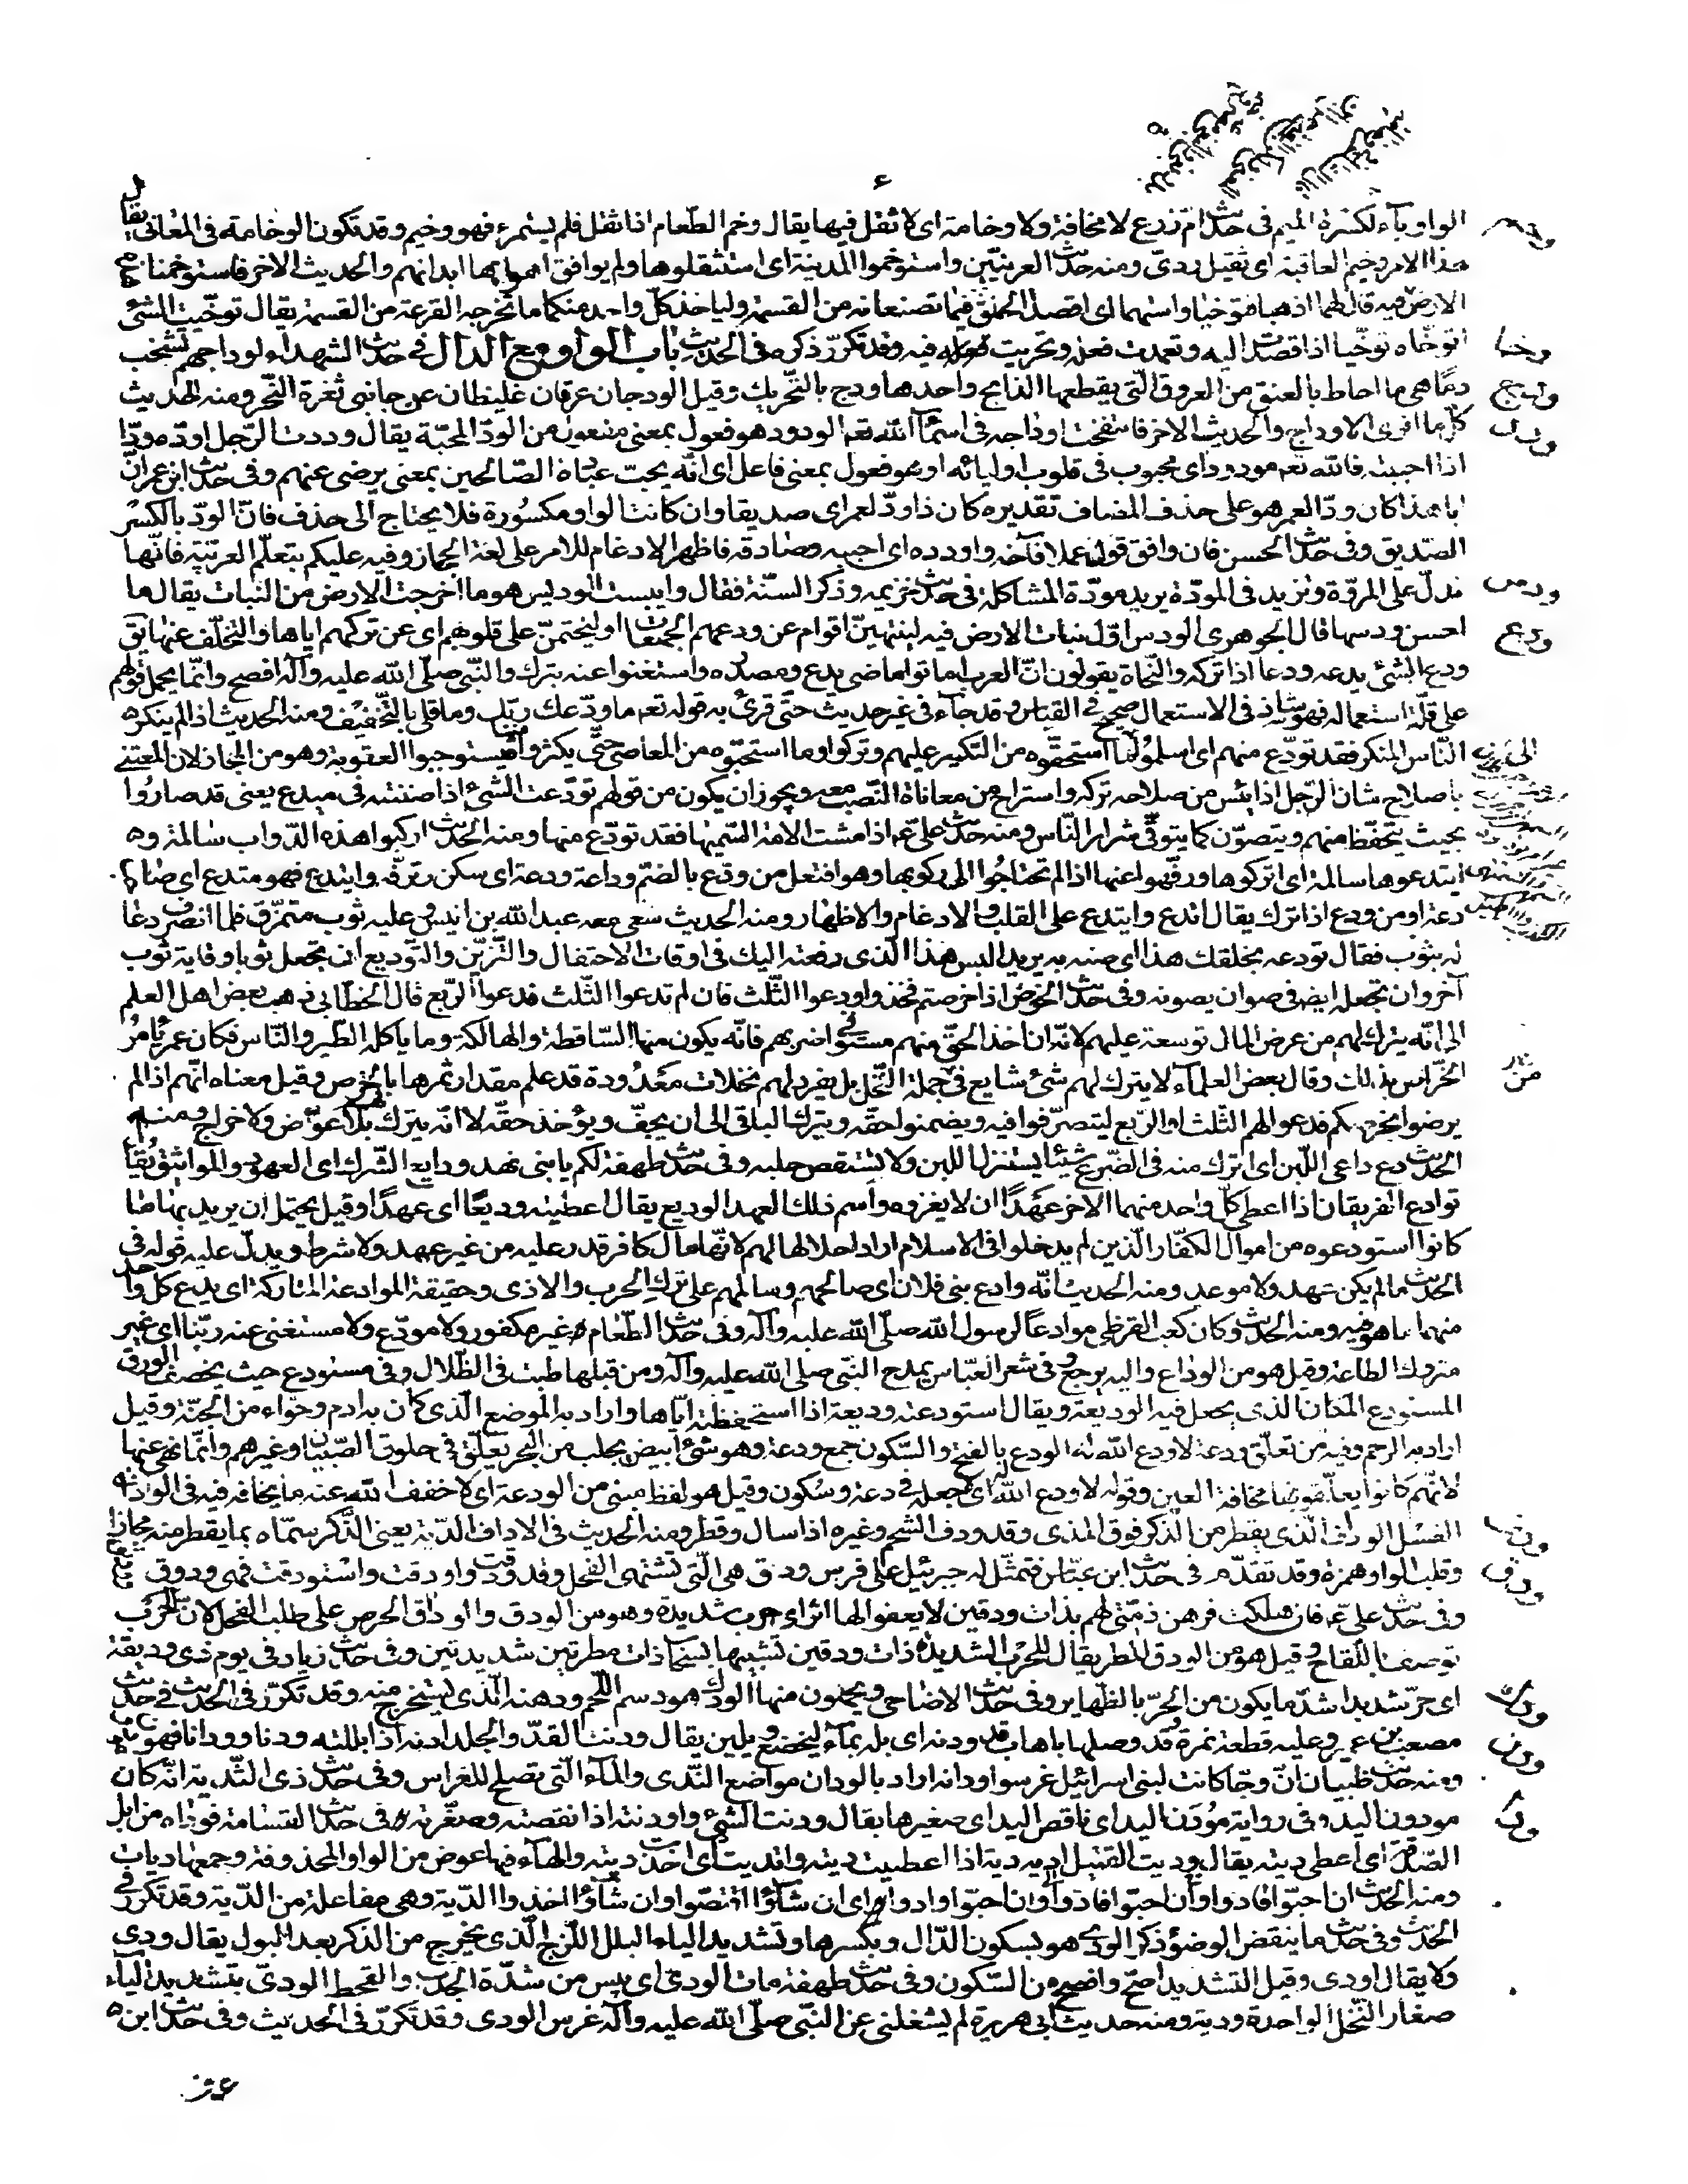 الواو يآء لكسرة الميم فى حدیث ام زرع لا مخافة ولا وخامة اى لا ثقل فيها يقال وخم الطّعام اذا ثقل فلم يستمرء فهو وخيم وقد تكون الوخامة فى المعانى يقال
هذا الامر وخيم العاقبة اى ثقيل ردىّ ومنه حدیث العرنيّين واستوخموا المدينة اى استثقلوها ولم يوافق اهوائها ابدانهم والحديث الاخر فاستوخمنا
الارض فيه قال لهما اذهبا فتوخيا واستهما اى اقصدا الحقّ فيما تصنعانه من القسمة وليأخذ كلّ واحد منكما ما تخرجه القرعة من القسمة يقال توخّيت الشئ
اتوخّاه توخّيا اذا قصدت اليه وتعمدت فعله وتحريت فيه وقد تكرّر ذكره فى الحديث باب الواو مع الدال فى حدیث الشهداء اوداجهم تشخب
دمًا هى ما احاط بالعنق من العروق الّتى يقطعها الذابح واحدها ودج بالتّحريك وقيل الودجان عرقان غليظان عن جانبى ثغرة النّحر ومنه الحديث
كلّ ما افرى الاوداج والحديث الاخر فانتفخت اوداجه فى اسمآء اللّه تعه الودود هو فعول بمعنى مفعول من الودّ المحبّة يقال وددت الرّجل اودّه ودّا
اذا احببته فاللّه تعه مودود اى محبوب فى قلوب اوليائه او هو فعول بمعنى فاعل اى انّه يحبّ عباده الصّالحين بمعنى يرضى عنهم وفى حدیث ابن عمر انّ
ابا هذا كان ودّا لعمر هو على حذف المضاف تقديره كان ذا ودّ لعمر اى صديقا وان كانت الواو مكسورة فلا يحتاج الى حذف فانّ الودّ بالكسر
الصّديق وفى حدیث الحسن فان وافق قول عملا فآخه واودده اى احببه وصادقه فاظهر الادغام للامر على لغة الحجاز وفيه عليكم بتعلّم العربيّة فانّها
تدلّ على المروّة وتزيد فى المودّة يريد مودّة المشاكلة فى حدیث خزيمه وذكر السّنة فقال وايبست الوديس هو ما اخرجت الارض من النبات يقال ما
احسن ودسها قال الجوهرى الودس اوّل نبات الارض فيه لينتهينّ اقوام عن ودعهم الجمعات او ليختمنّ على قلوبهم اى عن تركهم اياها والتخلّف عنها يق
ودع الشئ يدعه ودعا اذا تركه والنّحاة يقولون انّ العرب اماتوا ماضى يدع ومصدره واستغنوا عنه بترك والنّبى صلّى اللّه عليه وآله افصح وانّما يحمل قولهم
على قلّة استعماله فهو شاذ فى الاستعمال صحيح فى القياس وقد جآء فى غير حديث حتّى قرئ به قوله تعه ما ودّعك ربّك وما قلى بالتّخفيف ومنه الحديث اذا لم ينكر
النّاس المنكر فقد تودّع منهم اى اسلموا الى ما استحقّوه من النّكير عليهم وتركوا وما استحبّوه من المعاصى حتّى يكثروا فيستوجبوا العقوبة وهو من المجاز لان المعتنى
باصلاح شان الرّجل اذا يئس من صلاحه تركه واستراح من معاناة النّصب معه ويجوز ان يكون من قولهم تودّعت الشئ اذا صنته فى ميدع يعنى قد صاروا
بحيث يتحفّظ منهم ويتصوّن كما يتوقّى شرار النّاس ومنه حدیث علىّ عه اذا مشت الامة السّميهى فقد تودّع منها ومنه الحدیث اركبوا هذه الدّواب سالمة و
ايتدعوها سالمة اى اتركوها ورفّهوا عنها اذا لم تحتاجوا الى ركوبها وهو افتعل من ودع بالضم وداعة ودعة اى سكن وترفّه وايتدع فهو متدع اى صاحب
دعة او من ودع اذا ترك يقال اتدع وايتدع على القلب والادغام والاظهار ومنه الحديث سعى معه عبد اللّه بن انيس وعليه ثوب متمزّق فلما انصرف دعا
له بثوب فقال تودعه بخلقك هذا اى صنه به يريد البس هذا الّذى دفعته اليك فى اوقات الاحتفال والتّزيّن والتّوديع ان تجعل ثوبا وقاية ثوب
آخر وان تجعله ايضه فى صوان يصونه وفى حدیث الخرص اذا خرصتم فخذوا ودعوا الثّلث فان لم تدعوا الثّلث فدعوا الرّبع قال الخطّابى ذهب بعض اهل العلم
الى انّه يترك لهم من عرض المال توسعة عليهم لانّه ان اخذ الحقّ منهم مستوفى اضرّ بهم فانّه يكون منها السّاقطة والهالكة وما ياكله الطّير والنّاس فكان عمر يأمر
الخرّاص بذلك وقال بعض العلمآء لا يترك لهم شئ شايع فى جملة النّخل بل يفرد لهم نخلات معدودة قد علم مقدار ثمرها بالخرص وقيل معناه انّهم اذا لم
يرضوا بخرصكم فدعوا لهم الثّلث او الرّبع ليتصرّفوا فيه ويضمنوا حقّه ويترك الباقى الى ان يجفّ ويؤخذ حقّه لا انّه يترك بلا عوض ولا خراج ومنه
الحدیث دع داعى اللّبن اى اترك منه فى الضّرع شيئا يستنزل اللبن ولا يستقص حلبه وفى حدیث طهفة لكم يا بنى نهد ودايع الشّرك اى العهود والمواثيق يقال
توادع الفريقان اذا اعطى كلّ واحد منهما الاخر عهدًا ان لا يغزوه واسم ذلك العهد الوديع يقال اعطيته وديعًا اى عهدًا وقيل يحتمل ان يريد بها ما
كانوا استودعوه من اموال الكفّار الّذين لم يدخلوا فى الاسلام اراد احلالها لهم لانّها مال كافر قدر عليه من غير عهد ولا شرط ويدلّ عليه قوله فى
الحدیث ما لم يكن عهد ولا موعد ومنه الحديث انّه وادع بنى فلان اى صالحهم وسالمهم على ترك الحرب والاذى وحقيقة الموادعة المتاركة اى يدع كل واحد
منهما ما هو فيه ومنه الحدیث وكان كعب القرظى موادعًا لرسول اللّه صلّى اللّه عليه وآله وفى حدیث الطّعام غير مكفور ولا مودّع ولا مستغنى عنه ربّنا اى غير
متروك الطاعة وقيل هو من الوداع واليه يرجع وفى شعر العبّاس يمدح النّبى صلى اللّه عليه وآله ومن قبلها طبت فى الظّلال وفى مستودع حيث يخصف الورق
المستودع المكان الذى يجعل فيه الوديعة ويقال استودعته وديعة اذا استحفظته ايّاها واراد به الموضع الّذى كان به ادم وحوّاء من الجنّة وقيل
اراد به الرحم وفيه من تعلّق ودعة لا ودع اللّه له الودع بالفتح والسّكون جمع ودعة وهو شئ ابيض يجلب من البحر يعلّق فى حلوق الصّبيان وغيرهم وانّما نهى عنها
لانّهم كانوا يعلّقونها مخافة العين وقوله لا ودع اللّه له اى لا جعله فى دعة وسكون وقيل هو لفظ مبنى من الودعة اى لا خفف اللّه عنه ما يخافه فيه فى الوداف
الغسل الوداف الّذى يقطر من الذكر فوق المذى وقد ودف الشحم وغيره اذا سال وقطر ومنه الحديث فى الاداف الدّية يعنى الذّكر سمّاه بما يقطر منه مجازا
وقلب الواو همزة وقد تقدّم فى حدیث ابن عبّاس فتمثّل له جبرئيل على فرس ودق هى الّتى تشتهى الفحل وقد ودقت واودقت واستودقت فهى ودوق
وفى حدیث علىّ عه فان هلكت فرهن ذمّتى لهم بذات ودقين لا يعفو لها اثر اى حرب شديدة وهو من الودق والوداق الحرص على طلب الفحل لانّ الحرب
توصف باللّقاح وقيل هو من الودق المطر يقال للحرب الشديدة ذات ودقين تشبيها بسحاب ذات مطرتين شديدتين وفى حدیث زياد فى يوم ذى وديقة
اى حرّ شديد اشدّ ما يكون من الحرّ بالظهاير وفى حدیث الاضاحى ويحملون منها الودك هو دسم اللّحم ودهنه الّذى يستخرج منه وقد تكرّر فى الحدیث فى حدیث
مصعب بن عمير وعليه قطعة نمرة قد وصلها باهاب قد ودنه اى بله بمآء ليخضع ويلين يقال ودنت القدّ والجلد ادنه اذا بللته ودنا وودانا فهو
ومنه حدیث ظبيان انّ وجّا كانت لبنى اسرائيل غرسوا ودانه اراد بالودان مواضع النّدى والمآء الّتى تصلح للغراس وفى حدیث ذى الثّدية انّه كان
مودون اليد وفى رواية مؤدن اليد اى ناقص اليد اى صغيرها يقال ودنت الشئ واودنته اذا نقصته وصغّرته فى حدیث القسامة فوداه من ابل
الصّدقة اى اعطى ديته يقال وديت القتيل اديه دية اذا اعطيت ديته واتديت اى اخذت ديته والهآء فيها عوض من الواو المحذوفة وجمعها ديات
ومنه الحدیث ان احبّوا قادوا وان احبّوا وادوا اى ان شآؤا اقتصّوا وان شآؤا اخذوا الدّية وهى مفاعلة من الدّية وقد تكرر فى
الحدیث وفى حدیث ما ينقض الوضوء ذكر الودى هو بسكون الدّال وبكسرها وتشديد الياء البلل اللّزج الّذى يخرج من الذكر بعد البول يقال ودى
ولا يقال اودى وقيل التشديد اصحّ وافصح من السّكون وفى حدیث طهفة مات الودىّ اى يبس من شدّة الجدب والقحط الودىّ بتشديد اليآء
صغار النّخل الواحدة ودية ومنه حديث ابى هريرة لم يشغلنى عن النّبى صلّى اللّه عليه وآله غرس الودى وقد تكرّر فى الحديث وفى حدیث ابن
وخم
وخا
ودج
ودد
ودس
ودع
ودف
ودق
ودك
ودن
ودى